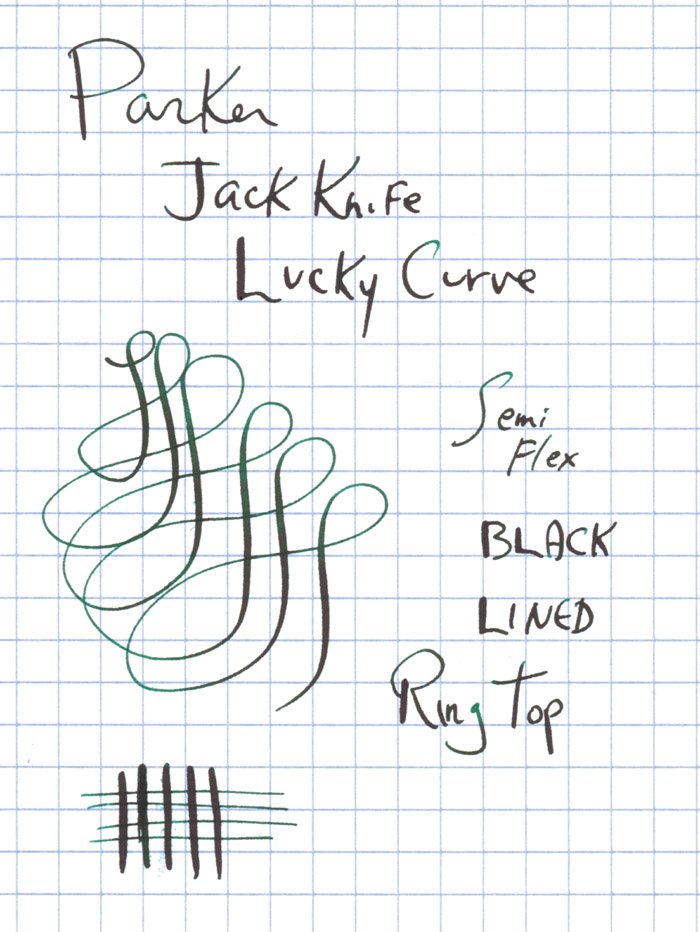 Parker
Jack Knife
Lucky Curve
Semi
Flex
BLACK
LINED
Ring Top